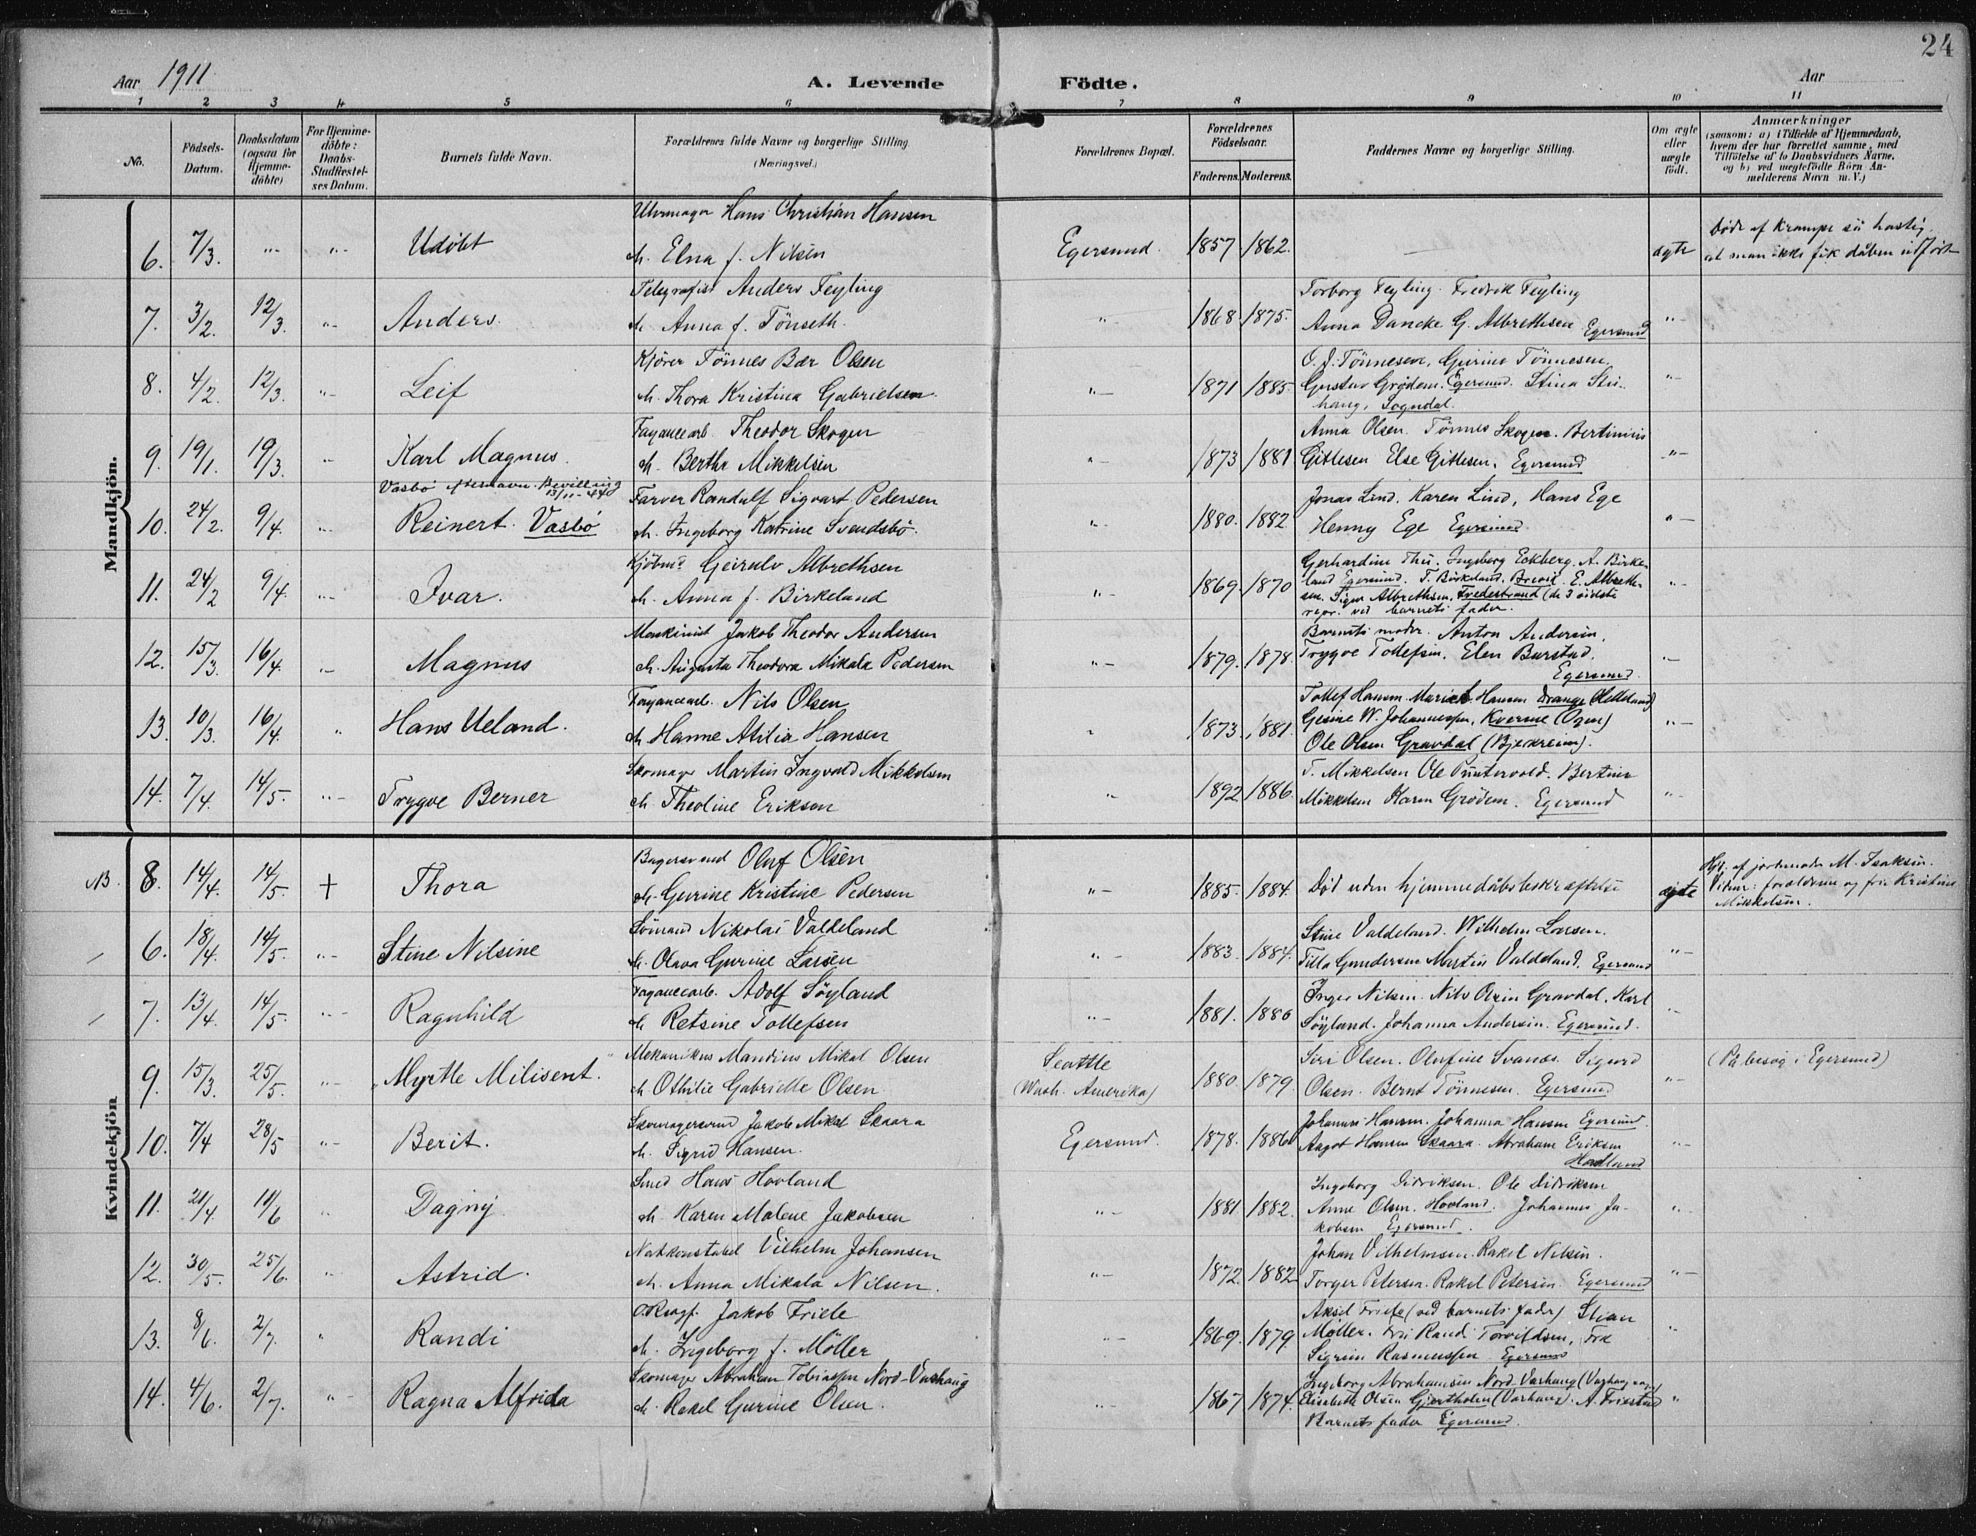 24
Aar 1911
A. Levende Födte.
Aar
1 2 3 4 5 6 7 8 9 10 11
No.
Födsels-Datum.
Daabsdatum (ogsaa for Hjemmedöbte)
For Hjemmedöbte: Daabs-Stadfæstelses Datum.
Barnets fulde Navn.
Forældrenes fulde Navne og borgerlige Stilling. (Næringsvei.)
Forældrenes Bopæl.
Forældrenes Födselsaar.
Faderens. Moderens.
Faddernes Navne og borgerlige Stilling.
Om ægte eller uægte födt.
Anmærkninger
(saasom: a) i Tilfælde af Hjemmedaab, hvem der har forrettet samme, med Tilföielse af to Daabsvidners Navne, og b) ved uægtefödte Börn Anmelderens Navn m. V.)
Mandkjön.
6. 7/3. „- „- Udöbt
Uhrmager Hans Christian Hansen
h. Elna f. Nilsen
Egersund. 1857 1862. — ægte
Döde af krampe så hastig at man ikke fik dåben udfört
7. 3/2. 12/3. „- Anders.
Telegrafist Anders Feyling
h. Anna f. Tönseth.
„ 1868 1875.
Torborg Feyling. Fredrik Feyling
Anna Dancke G. Albrethsen Egersund „-
8. 4/2. 12/3. „- Leif
Kjörer Tönnes Bær Olsen
h. Thora Kristina Gabrielsen.
„- 1871 1885.
O. J. Tönnesen, Gurine Tönnesen,
Gustav Grödem. Egersund. Stina Stuhaug, Sogndal. „-
9. 19/1. 19/3. „- Karl Magnus.
Fayancearb. Theodor Skogen
h. Berthe Mikkelsen
„- 1873 1881
Anna Olsen. Tönnes Skogen. Bertinius
Gitlesen Else Gitlesen. Egersund „-
Vasbö efternavn. Bevilling 13/11-44
10. 24/2. 9/4. „- Reinert. Vasbö
Farver Randulf Sigvart Pedersen
h. Ingeborg Katrine Svendsbö.
„- 1880. 1882
Jonas Lind. Karen Lind, Hans Ege
Henny Ege Egersund. „-
11. 24/2 9/4. „- Ivar.
Kjöbmd Geirulv Albrethsen
h. Anna f. Birkeland
„- 1869. 1870
Gerhardine Thu. Ingeborg Eckberg. A. Birkeland Egersund. T. Birkeland. Brend. E. Albrethsen. Signe Albrethsen, Fredestrand (de 3 sidste repr. ved barnets fader. „-
12. 15/3. 16/4. „- Magnus
Maskinist Jakob Theodor Andersen
h. Augusta Theodora Mikala Pedersen
„- 1879. 1878.
Barnets moder. Anton Andersen.
Trygve Tollefsen. Elen Burstad. Egersund. „-
13. 10/3. 16/4. „ Hans Ueland.
Fayancearb. Nils Olsen
h Hanne Atilia Hansen
„ 1873. 1881.
Tollef Hansen. Marie Hansen Drange (Helleland)
Gesine W. Johannessen, Kverme (Ogn)
Ole Olsen Gravdal (Bjerkreim). „-
14. 7/4. 14/5. „- Trygve Berner
Skomager Martin Ingvald Mikkelsen
h Theoline Eriksen
„ 1892 1886.
T. Mikkelsen Ole Puntervold. Bertine
Mikkelsen Karen Grödem. Egersund „-
Kvindekjön
NB. 8. 14/4. 14/5. + Thora
Bagersvend Oluf Olsen
h. Gurine Kristine Pedersen
„- 1885. 1884. Död uden hjemmedåbsbekræftelse ægte
Hjd. af jordmoder M. Isaksen. Vidner: forældrene og fru Kristine Mikkelsen.
6. 18/4. 14/5. „- Stine Nilsine
Sömand Nikolai Valdeland
h. Olava Gurine Larsen
„- 1883. 1884.
Stine Valdeland. Wilhelm Larsen.
Tilla Gundersen Martin Valdeland. Egersund „-
7. 13/4. 14/5. „- Ragnhild
Fayancearb. Adolf Söyland
h. Retsine Tollefsen
„- 1881. 1886
Inger Nilsen. Nils Olsen Gravdal. Karl
Söyland. Johanna Andersen. Egersund. „
9. 15/3. 25/5. „- Myrtle Milisent.
Mekanikus Mandius Mikal Olsen
h Othilie Gabrielle Olsen
Seattle
(Wash. Amerika)
1880. 1879.
Siri Olsen. Olufine Svanæs. Sigurd
Olsen. Bernt Tönnesen. Egersund „-
(På besög i Egersund)
10. 7/4 28/5 „- Berit.
Skomagersvend Jakob Mikal Skaara
h. Sigrid Hansen.
Egersund. 1878. 1886
Johannes Hansen. Johanna Hansen Egersund.
Aagot Hansen Skaara. Abraham Eriksen
Hadland „-
11. 21/4 11/6 „ Dagny.
Smed Hans Hovland
h. Karen Malene Jakobsen
„- 1881 1882.
Ingeborg Didriksen. Ole Didriksen
Anne Olsen. Hovland. Johannes Jakobsen Egersund. „
12. 30/5. 25/6. „ Astrid.
Natkonstabel Vilhelm Johansen
h. Anna Mikala Nilsen.
„- 1872. 1882
Johan Vilhelmsen. Rakel Nilsen.
Torger Petersen. Rakel Petersen. Egersund „-
13. 8/6. 2/7. „ Randi
O.Rsagf. Jakob Friele
h. Ingeborg f. Möller
„- 1869. 1879.
Aksel Friele (ved barnets fader) Stian
Möller. Fru Randi Torvildsen, Frk
Sigrun Rasmussen Egersund „
14. 4/6. 2/7. „- Ragna Alfrida
Skomager Abraham Tobiassen Nord-Varhaug
h. Rakel Gurine Olsen.
„ 1867 1874.
Ingeborg Abrahamsen Nord-Varhaug (Varhaug sogn)
Elisabeth Olsen Gjertholen (Varhaug). A. Friestad
Barnets fader Egersund. „